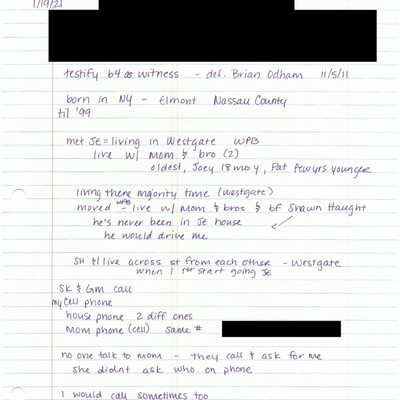 1/19/21
testify b4 as witness - def. Brian Odham 11/5/11
born in NY - Elmont Nassau County
til '99
met JE = living in Westgate WPB
live w/ mom & bro (2)
oldest, Joey 18 mo y, Pat few yrs younger
living there majority time (westgate)
moved WPB - live w/ mom & bros & bf Shawn Haught
he's never been in JE house
he would drive me
SH & I live across st from each other - Westgate
when I 1st start going JE
SK & GM call
my cell phone
house phone 2 diff ones
Mom phone (cell) same #
no one talk to mom - they call & ask for me
she didnt ask who on phone
I would call sometimes too